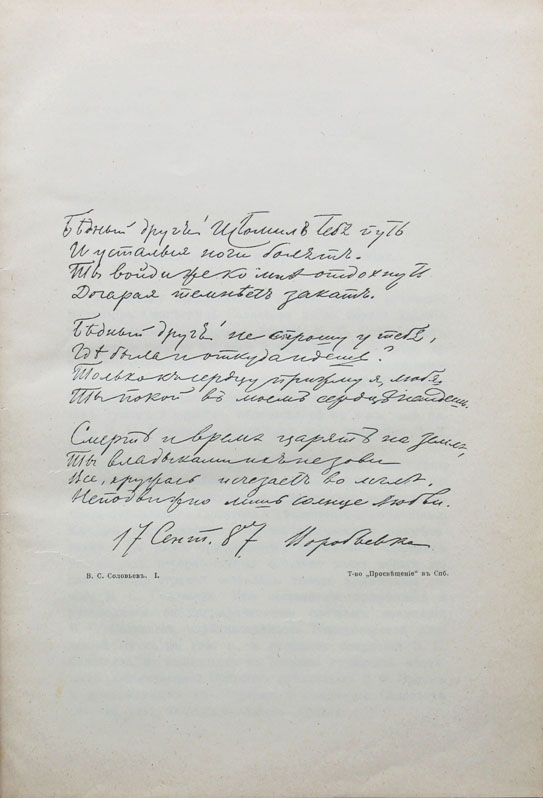 Бѣдный другъ! Истомилъ тебя путь
И усталыя ноги болятъ.
Ты войди же ко мнѣ отдохнуть
Догорая темнѣетъ закатъ.
Бѣдный другъ! не спрошу у тебя,
Гдѣ была и откуда идешь?
Только къ сердцу прижму я, любя
Ты покой въ моемъ сердцѣ найдешь.
Смерть и время царятъ на земле,
Ты владыками ихъ не зови
Все, кружась исчезаетъ во мглѣ.
Неподвижно лишь солнце любви.
17 Сент. 87 Воробьевка
В. С. Соловьевъ. I.
Т-во „Просвѣщеніе" въ Спб.